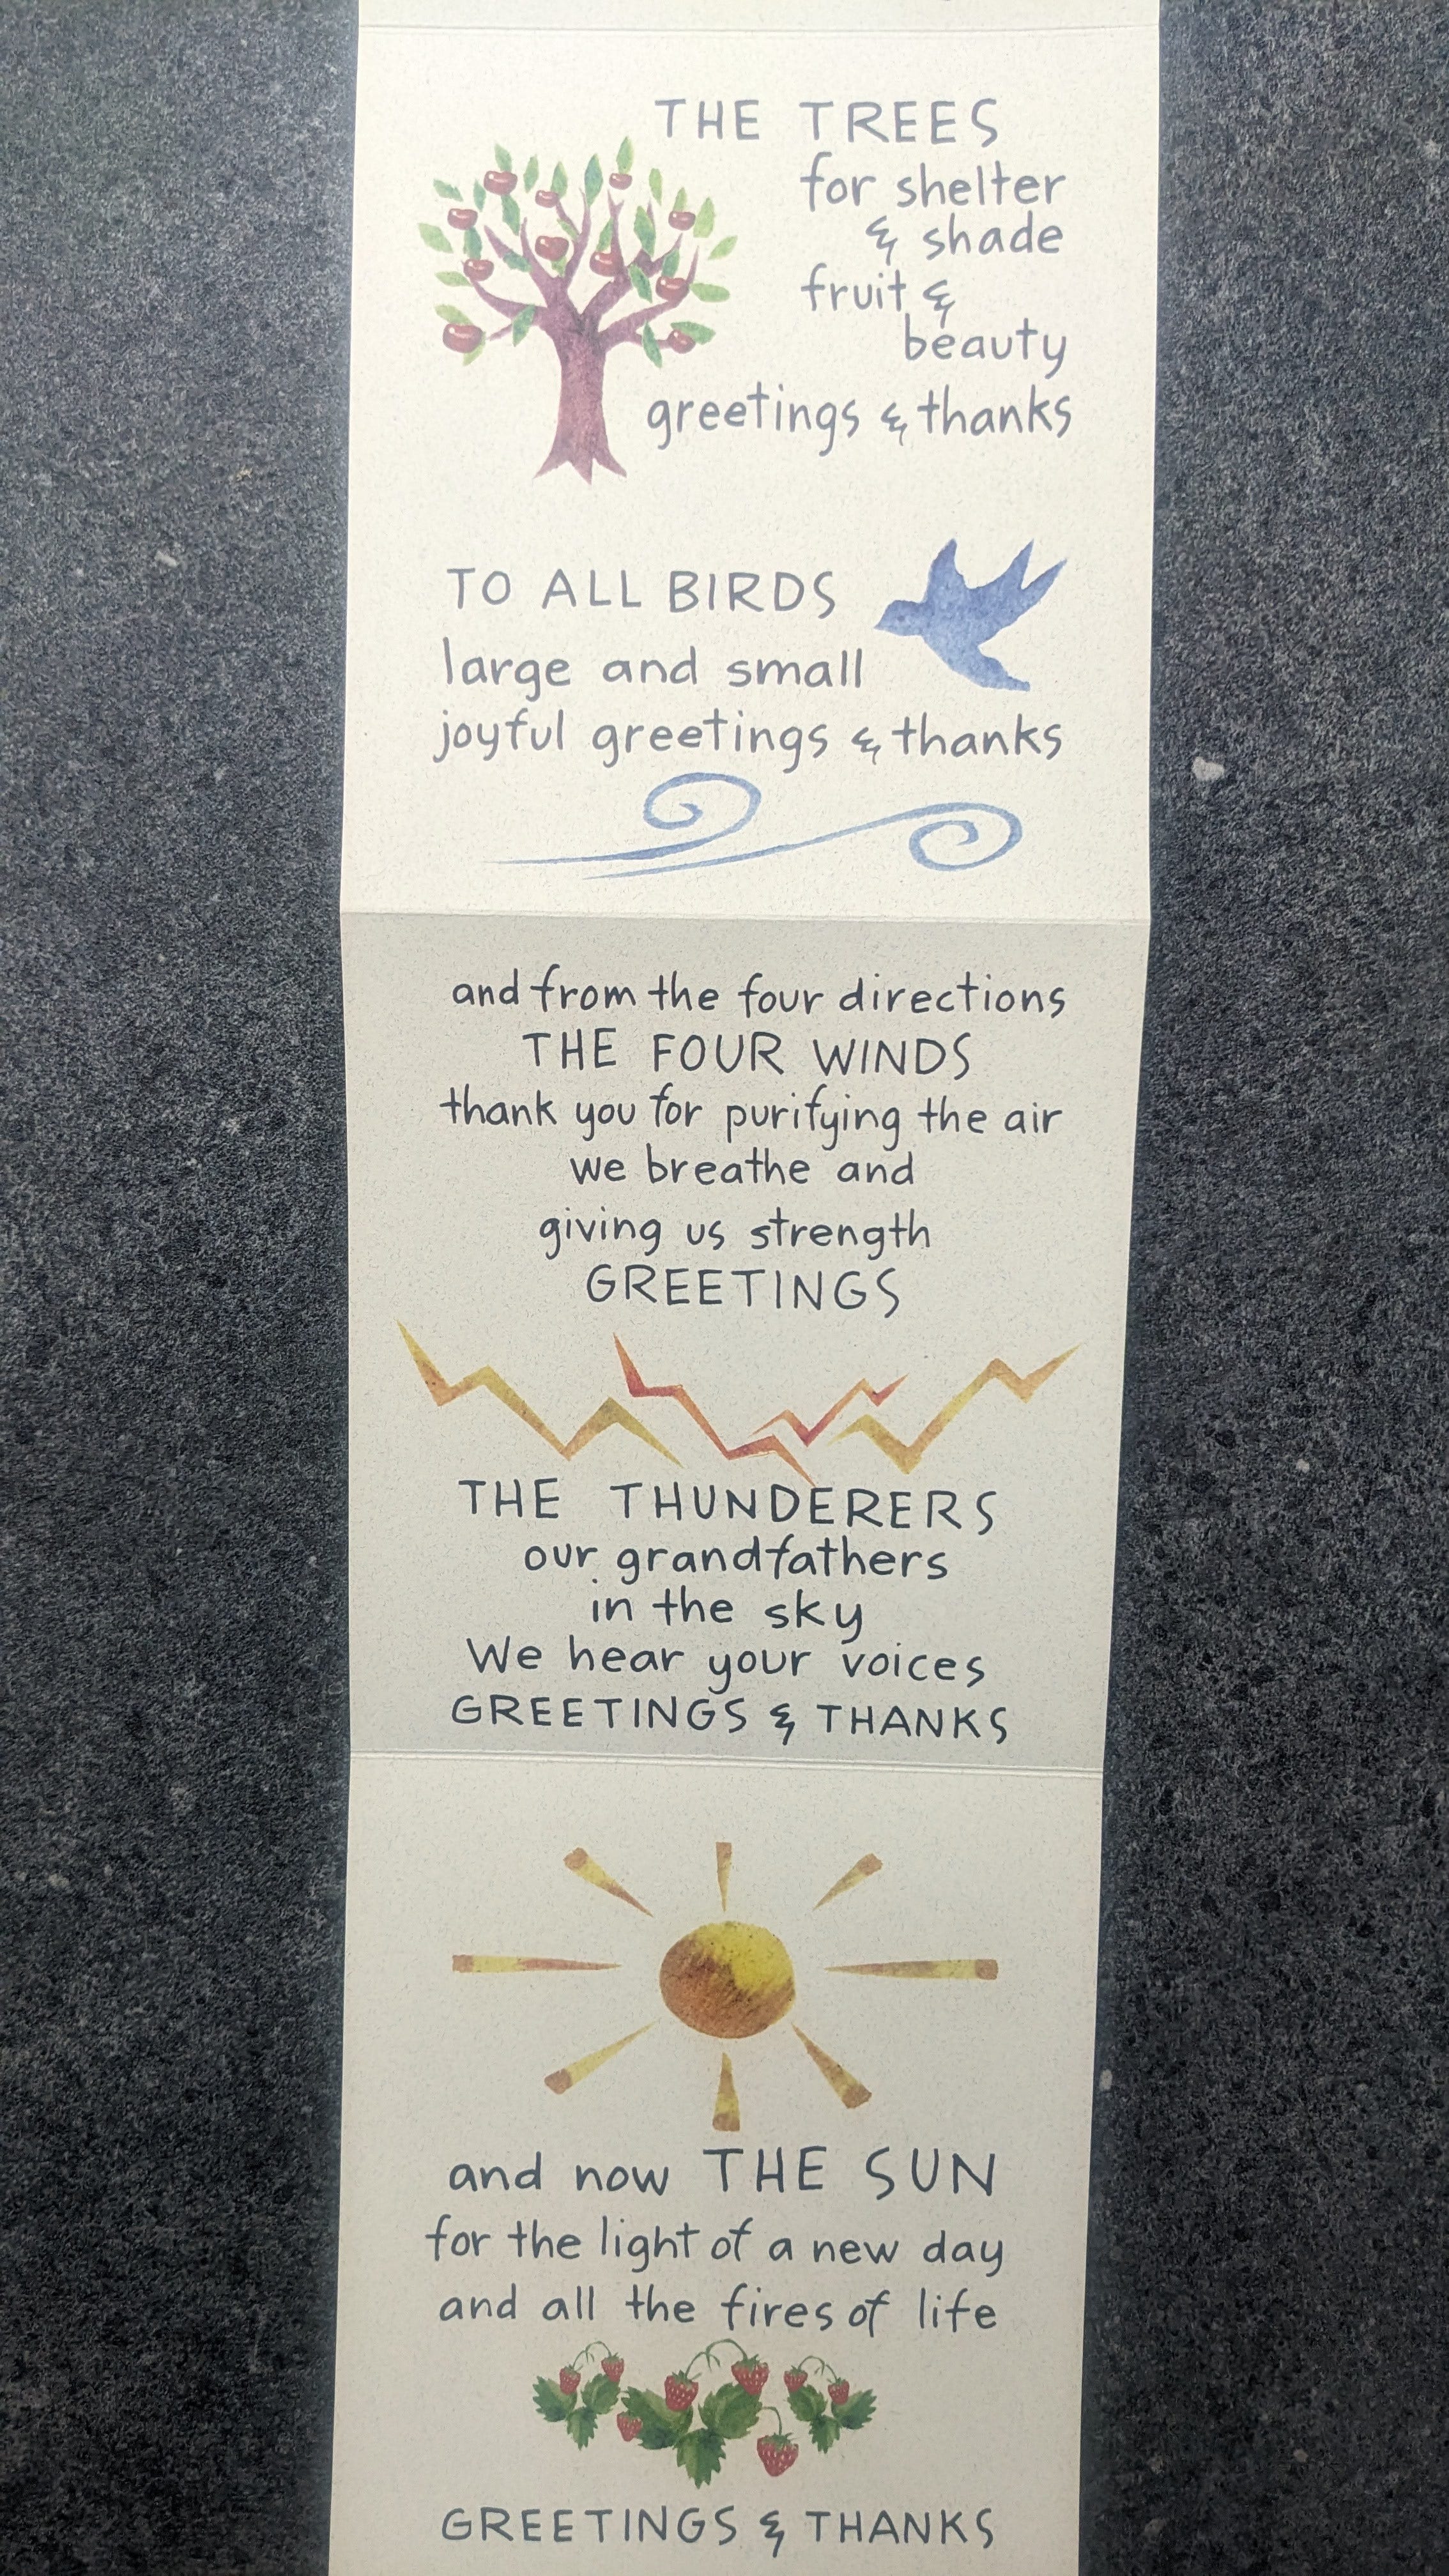 THE TREES
for shelter
& shade
fruit &
beauty
greetings & thanks
TO ALL BIRDS
large and small
joyful greetings & thanks
and from the four directions
THE FOUR WINDS
thank you for purifying the air
we breathe and
giving us strength
GREETINGS
THE THUNDERERS
our grandfathers
in the sky
We hear your voices
GREETINGS & THANKS
and now THE SUN
for the light of a new day
and all the fires of life
GREETINGS & THANKS